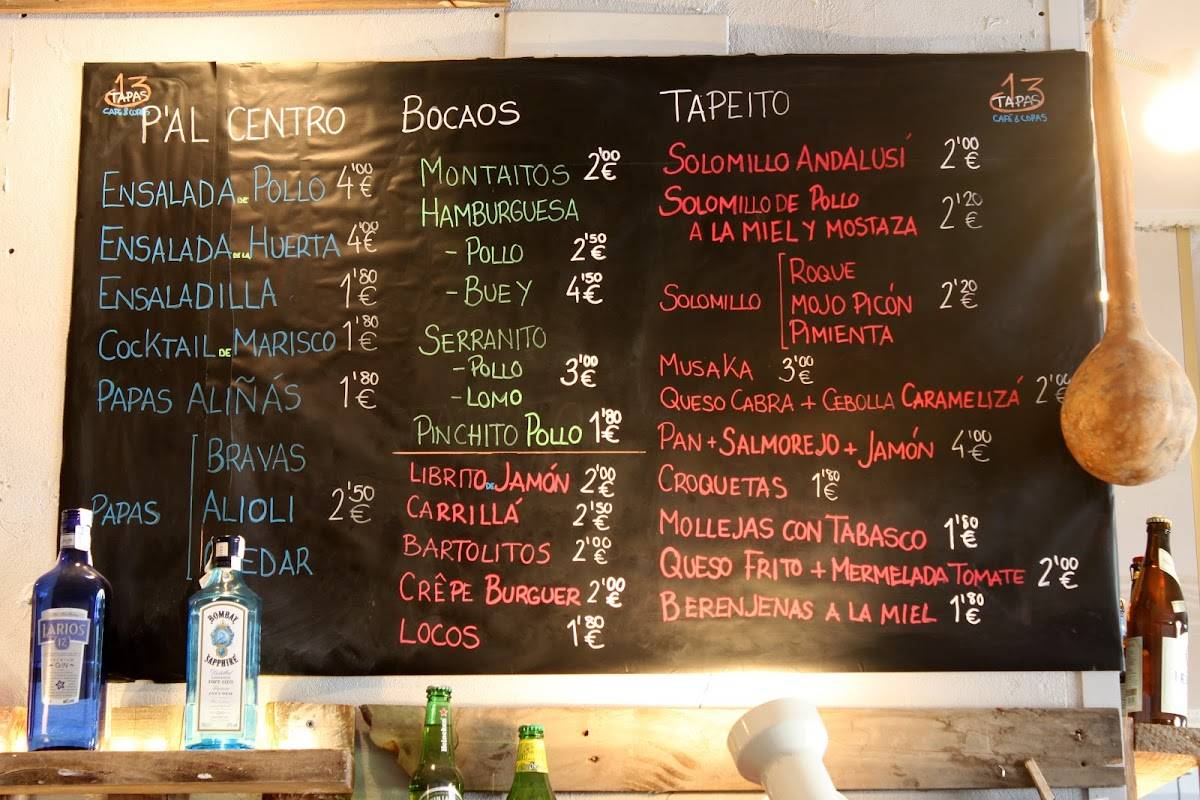 13
TAPAS
CAFÉ & COPAS
P'AL CENTRO
ENSALADA DE POLLO 4'00 €
ENSALADA DE LA HUERTA 4'00 €
ENSALADILLA 1'80 €
COCKTAIL DE MARISCO 1'80 €
PAPAS ALIÑÁS 1'80 €
PAPAS
BRAVAS
ALIOLI
2'50 €
EDAR
BOCAOS
MONTAITOS 2'00 €
HAMBURGUESA
- POLLO 2'50 €
- BUEY 4'50 €
SERRANITO
- POLLO
- LOMO
3'00 €
PINCHITO POLLO 1'80 €
LIBRITO DE JAMÓN 2'00 €
CARRILLÁ 2'50 €
BARTOLITOS 2'00 €
CRÊPE BURGUER 2'00 €
LOCOS 1'80 €
TAPEITO
13
TAPAS
CAFÉ & COPAS
SOLOMILLO ANDALUSÍ 2'00 €
SOLOMILLO DE POLLO
A LA MIEL Y MOSTAZA 2'20 €
SOLOMILLO
ROQUE
MOJO PICÓN
PIMIENTA
2'20 €
MUSAKA 3'00 €
QUESO CABRA + CEBOLLA CARAMELIZÁ 2'00 €
PAN + SALMOREJO + JAMÓN 4'00 €
CROQUETAS 1'80 €
MOLLEJAS CON TABASCO 1'80 €
QUESO FRITO + MERMELADA TOMATE 2'00 €
BERENJENAS A LA MIEL 1'80 €
LARIOS
12
GIN
BOMBAY
SAPPHIRE
Heineken